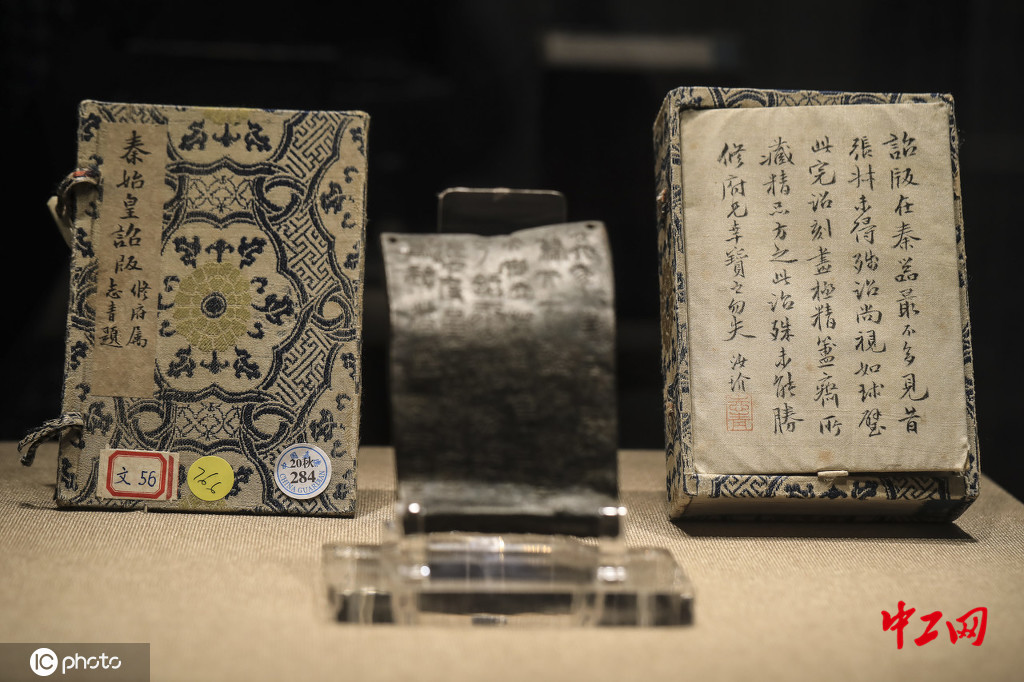 秦始皇詔版
修府属
志青題
文 56
20秋
284
CHINA GUARDIAN
詔版在秦器最不多見昔
張叔未得殘詔尚視如球璧
此完詔刻畫極精簠齋所
藏精品方之此詔殊未能勝
修府兄幸寶之勿失 汝玠
志青
中工网
IC photo